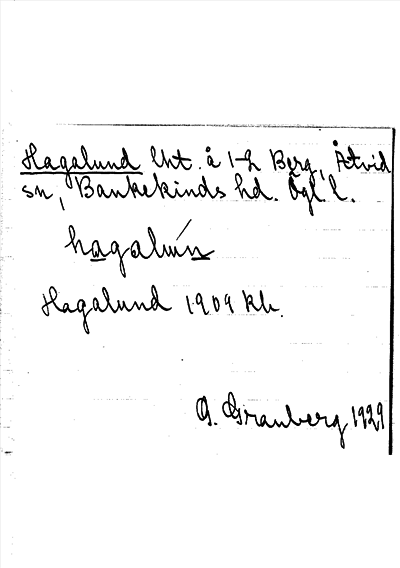 Hagalund lht. å 1-2 Berg, Åtvid
sn, Bankekinds hd. Ögl. l.
hagalun
Hagalund 1909 kb.
G. Granberg 1929